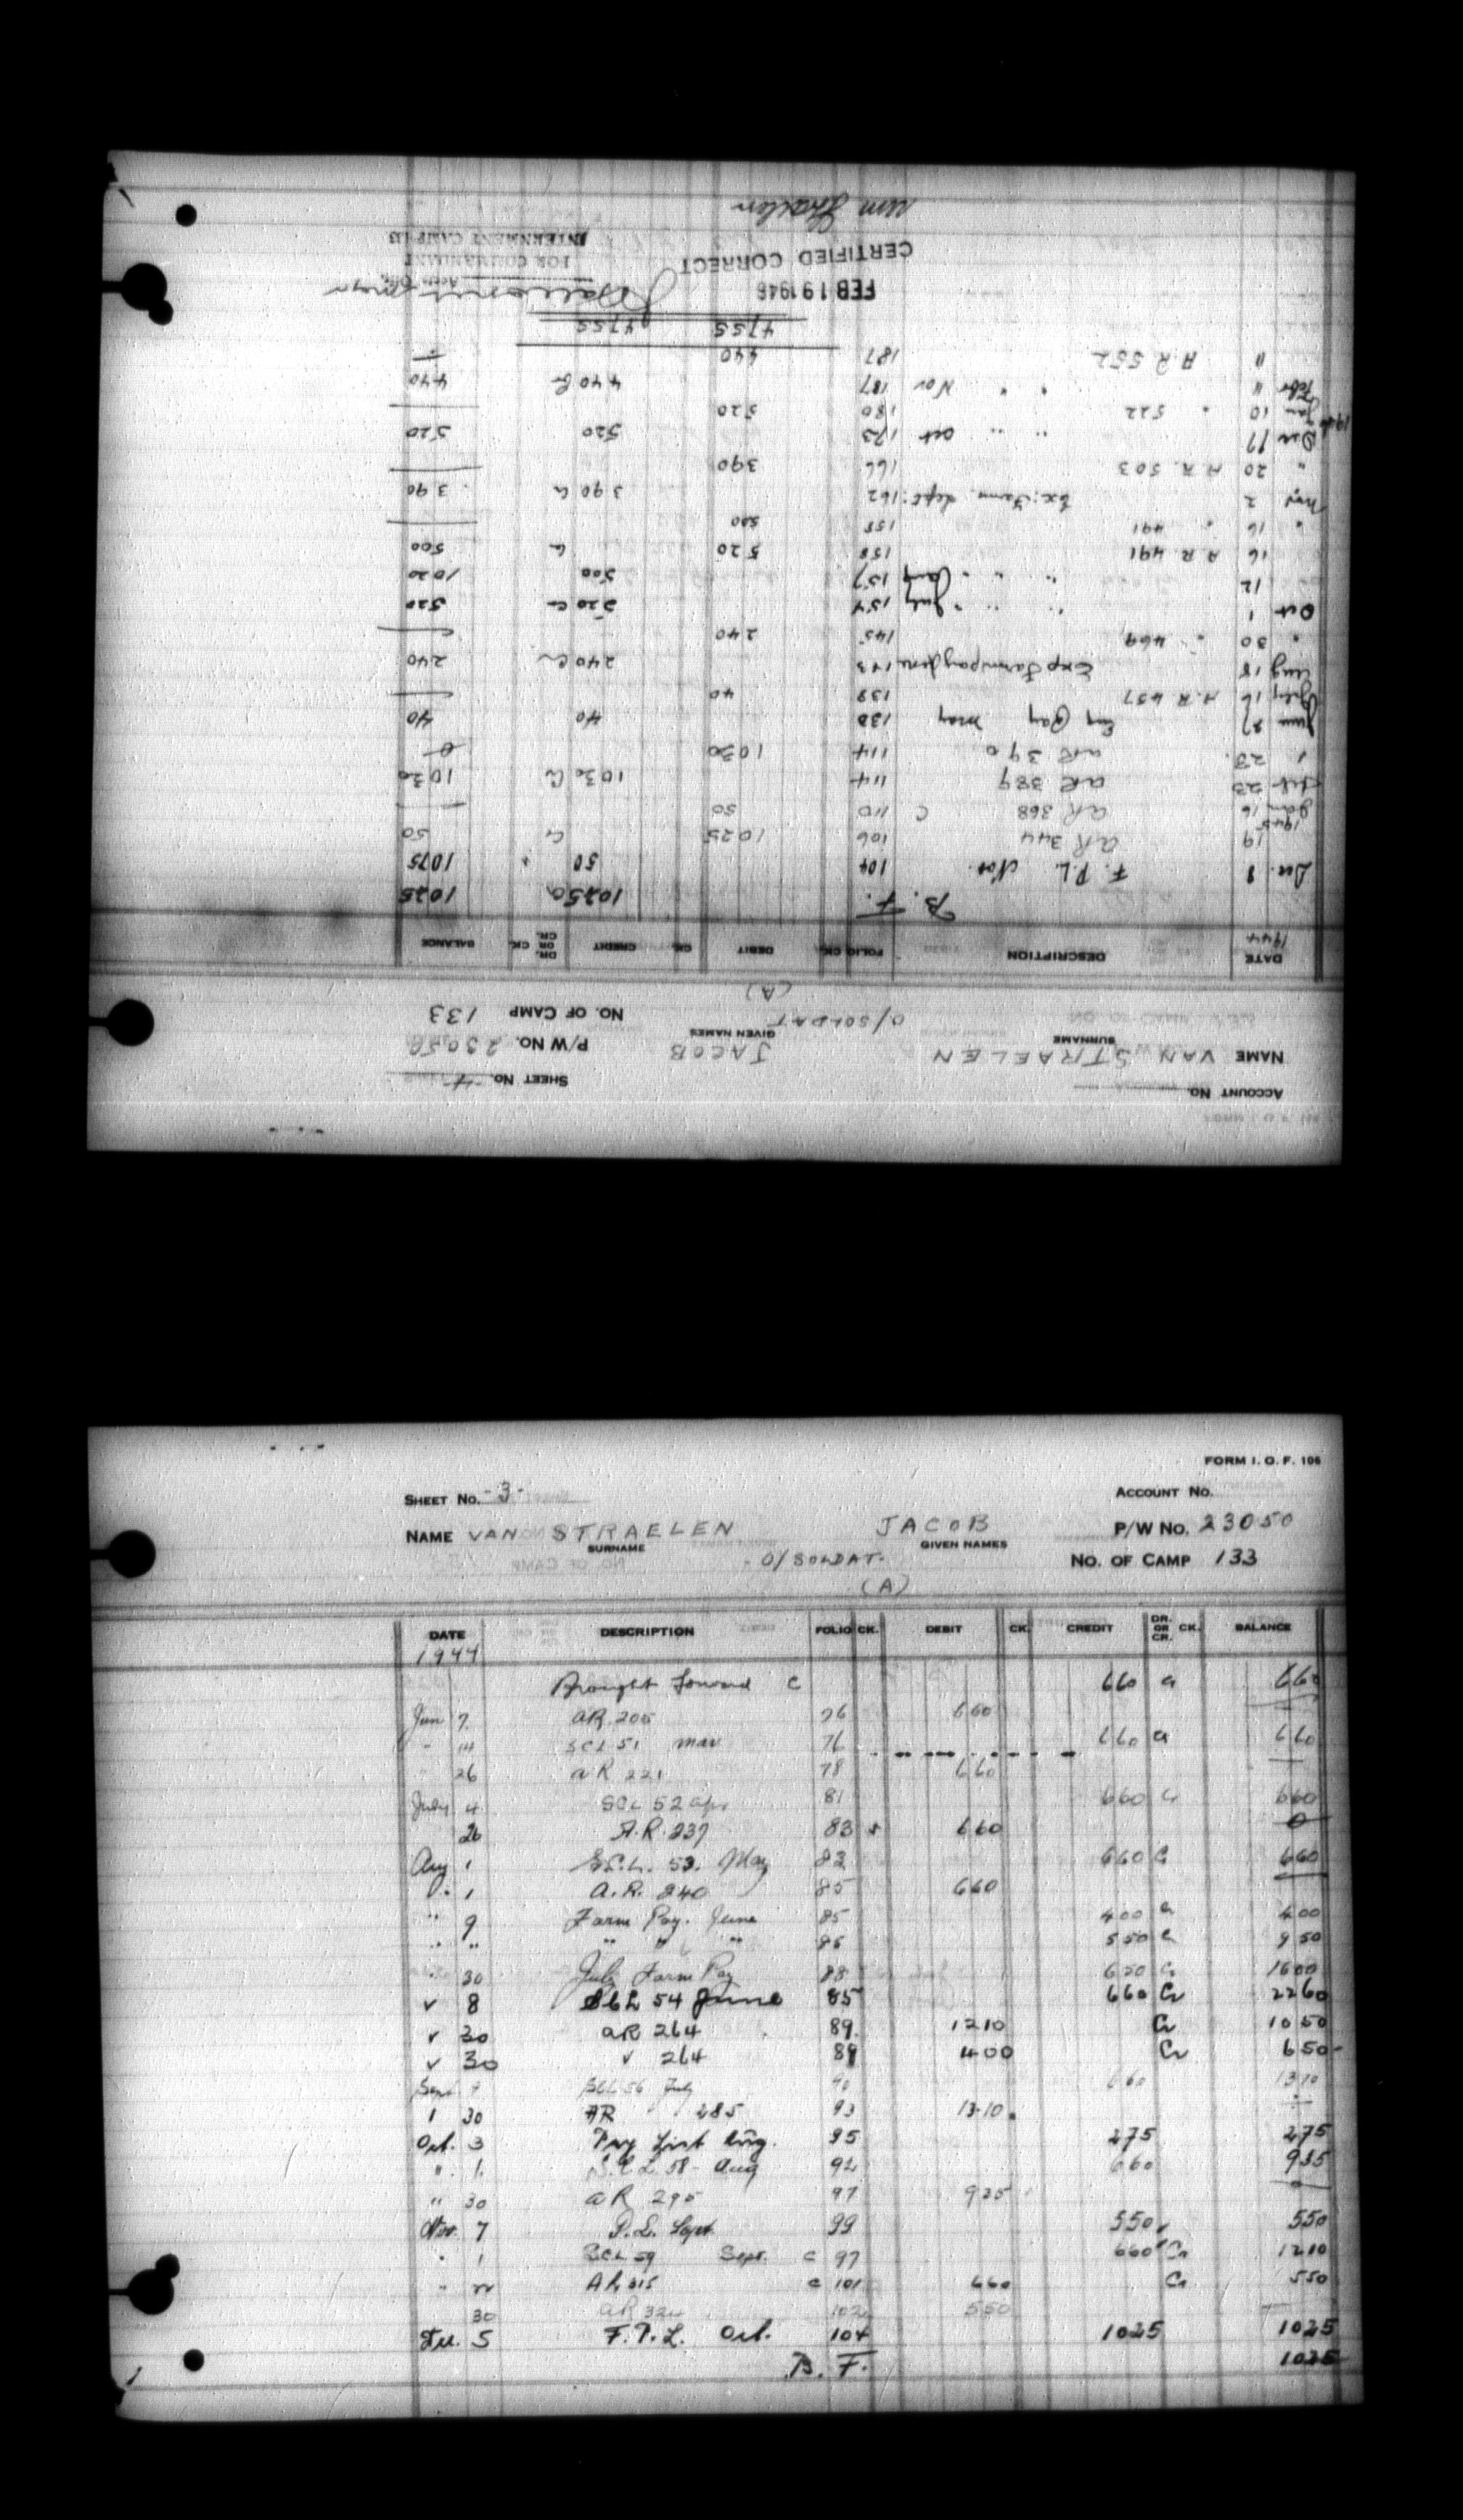 ACCOUNT NO.
SHEET NO. 4
NAME VAN STRAELEN JACOB P/W NO. 23050
SURNAME GIVEN NAMES
O/SOLDAT NO. OF CAMP 133
(A)
DATE DESCRIPTION FOLIO CK. DEBIT CK. CREDIT DR. OR CR. CK. BALANCE
1944
B. F. 1025 1025
Dec. 8 F. P. L. Nov. 104 50 1075
19 AR 344 106 1025 Cr 50
1945
Jan 16 AR 368 C 110 50 —
Feb 23 AR 389 114 1030 Cr 1030
" 23 AR 390 114 1030 0
June 27 Pay May 138 40 40
July 16 A.R 457 139 40 —
Aug 18 Exp Farm pay June 143 240 Cr 240
" 30 " 469 145 240 —
Oct 1 " " July 154 520 Cr 520
12 " " " Aug 157 500 1020
16 A R 491 158 520 Cr 500
" 16 " 491 158 500 —
Nov 2 Ex: Farm Sept: 162 390 Cr 390
" 20 A.R. 503 166 390 —
Dec 17 " " " Oct 173 520 520
1946
Jan 10 " 522 180 520 —
Febr 11 " " Nov 187 440 Cr 440
11 A R 552 187 440 —
4755 4755
FEB 19 1946
CERTIFIED CORRECT
FOR COMMANDANT
INTERNMENT CAMP
FORM I. O. F. 106
SHEET NO. -3- ACCOUNT NO.
NAME VAN STRAELEN JACOB P/W NO. 23050
SURNAME GIVEN NAMES
O/SOLDAT. NO. OF CAMP 133
(A)
DATE DESCRIPTION FOLIO CK. DEBIT CK. CREDIT DR. OR CR. CK. BALANCE
1944
Brought Forward C 660 Cr 660
Jun 7 AR. 205 76 660
" 14 SCL 51 Mar 76 660 Cr 660
26 AR 221 78 660 —
July 4 SCL 52 Apr 81 660 Cr 660
26 A.R. 237 83 660 0
Aug 1 S.C.L. 53. May 83 660 Cr 660
" 1 A.R. 240 85 660
" 9 Farm Pay. June 85 400 Cr 400
" " " " " 86 550 Cr 950
" 30 July Farm Pay 88 650 Cr 1600
v 8 SCL 54 June 85 660 Cr 2260
v 30 AR 264 89. 1210 Cr 1050
v 30 v 264 89 400 Cr 650-
Sept SCL 56 July 660 1310
1 30 AR 285 93 1310. —
Oct. 3 Pay List Aug. 95 275 275
" 1. S.C.L 58- Aug 92 660 935
" 30 AR 295 97 935 0
Nov. 7 P.L. Sept. 99 550 550
" 1 SCL 59 Sept. C 97 660 Cr 1210
" AR 315 C 101 660 Cr 550
30 AR 550 —
Dec. 5 F.P.L. Oct. 104 1025 1025
B. F. 1025